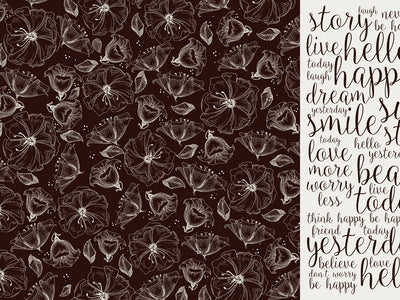 laugh never
story be ha
live hello
today
laugh happ
dream
yesterday
smile
today hello
love yesterda
more bea
worry live
less toda
think happy be happ
friend today
yesterda
believe love
don't worry
be happy hell